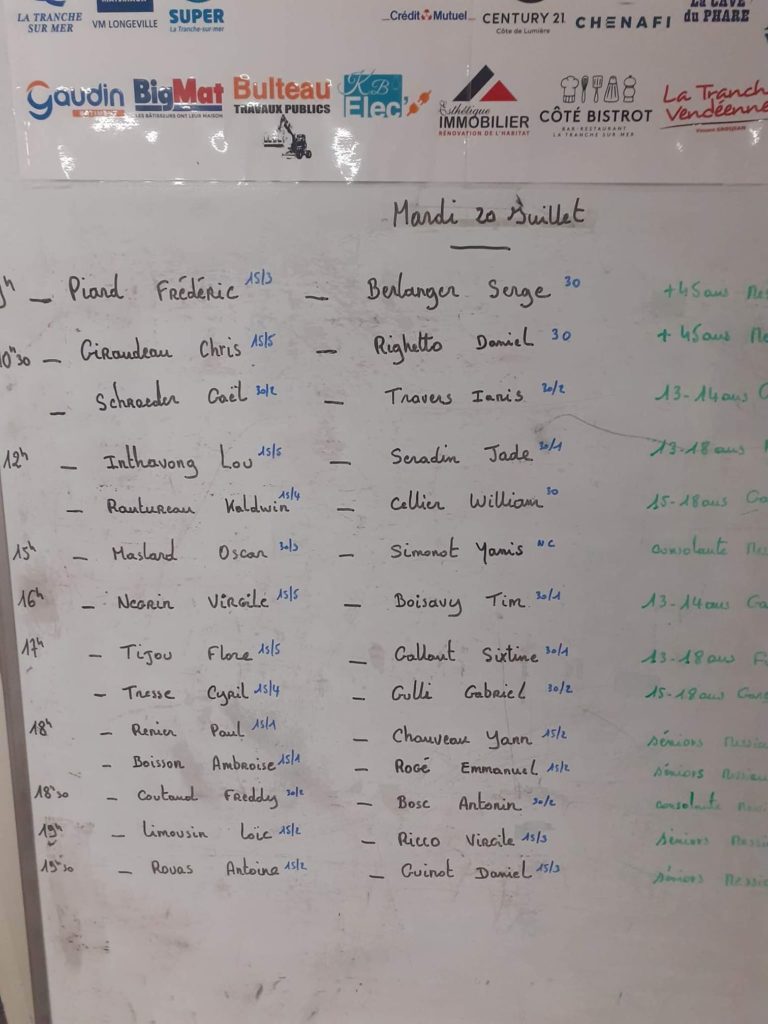 LA TRANCHE SUR MER VM LONGEVILLE SUPER La Tranche-sur-mer Crédit Mutuel CENTURY 21 Côte de Lumière CHENAFI du PHARE
Gaudin BigMat LES BÂTISSEURS ONT LEUR MAISON Bulteau TRAVAUX PUBLICS KB Elec' Esthétique IMMOBILIER RÉNOVATION DE L'HABITAT CÔTÉ BISTROT BAR-RESTAURANT LA TRANCHE SUR MER La Tranch Vendéenne
Mardi 20 Juillet
h - Piard Frédéric 15/3 - Berlanger Serge 30 +45 ans Mes
10h30 - Giraudeau Chris 15/5 - Righetto Daniel 30 +45 ans Me
- Schraeder Gaël 30/2 - Travers Ianis 30/2 13-14 ans G
12h - Inthavong Lou 15/5 - Seradin Jade 30/1 13-18 ans
- Rautureau Kaldwin 15/4 - Cellier William 30 15-18 ans Ga
15h - Maslard Oscar 30/3 - Simonot Yanis NC consolante Mes
16h - Negrin Virgile 15/5 - Boisavy Tim 30/1 13-14 ans Ga
17h - Tijou Flore 15/5 - Gallaut Sixtine 30/1 13-18 ans Fi
- Tresse Cyril 15/4 - Gulli Gabriel 30/2 15-18 ans Garç
18h - Renier Paul 15/1 - Chauveau Yann 15/2 séniors Messieu
- Boisson Ambroise 15/1 - Rogé Emmanuel 15/2 séniors Messieu
18h30 - Coutand Freddy 30/2 - Bosc Antonin 30/2 consolante Messi
19h - Limousin Loïc 15/2 - Ricco Virgile 15/3 séniors Messi
19h30 - Rouas Antoine 15/2 - Guinot Daniel 15/3 séniors Messie